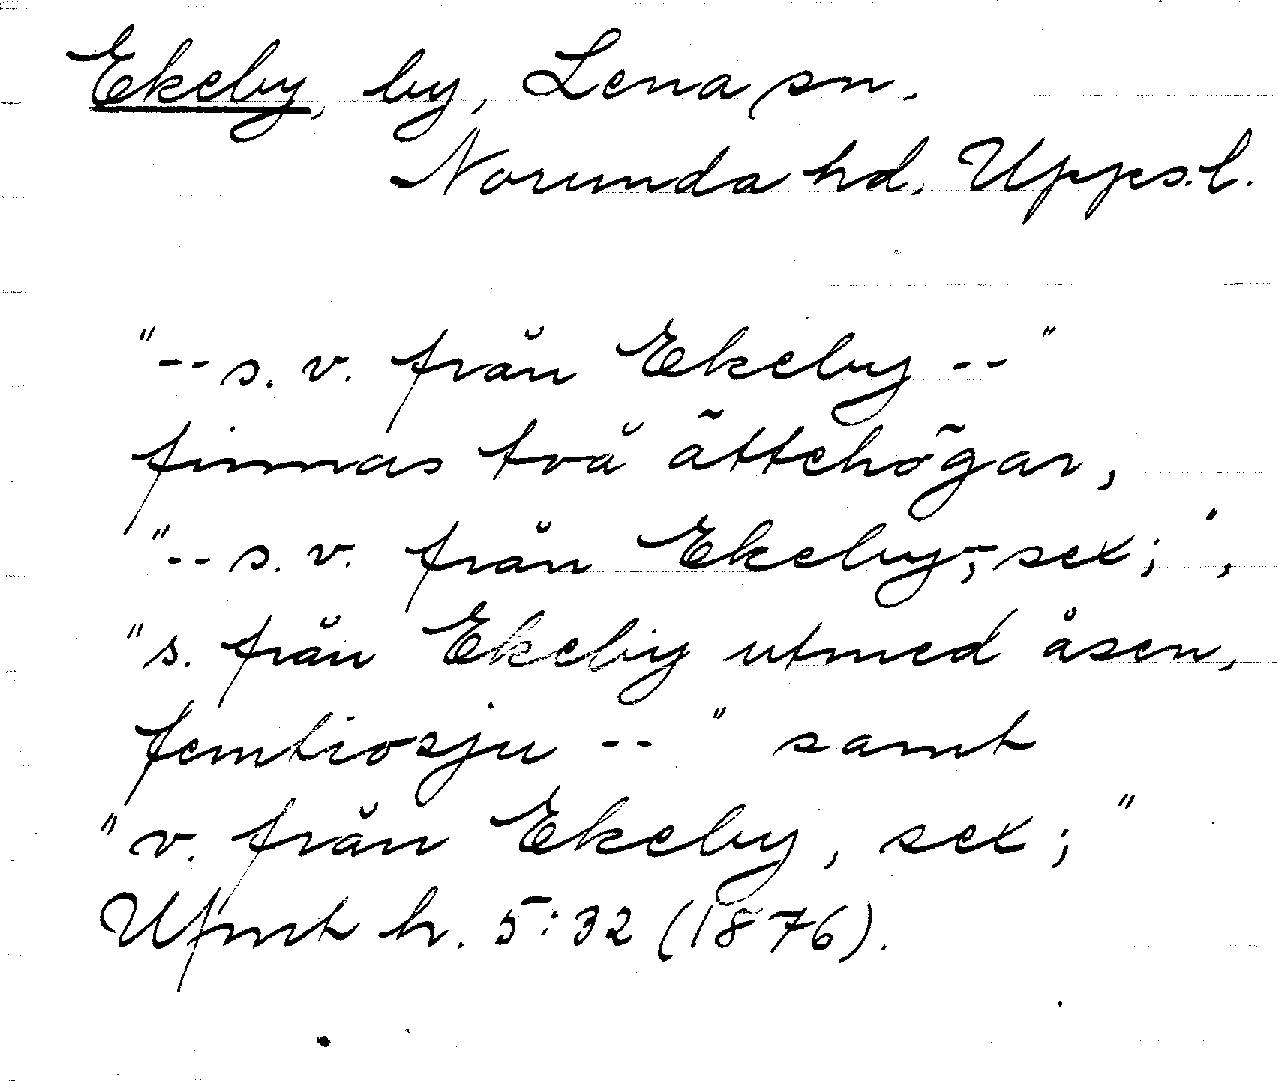 Ekeby, by, Lena sn.
Norunda hd, Upps.l.
"-- s. v. från Ekeby --"
finnas två ättehögar,
"-- s. v. från Ekeby-, sex; ",
"s. från Ekeby utmed åsen,
femtiosju -- " samt
"v. från Ekeby, sex; "
Ufmt h. 5:32 (1876).